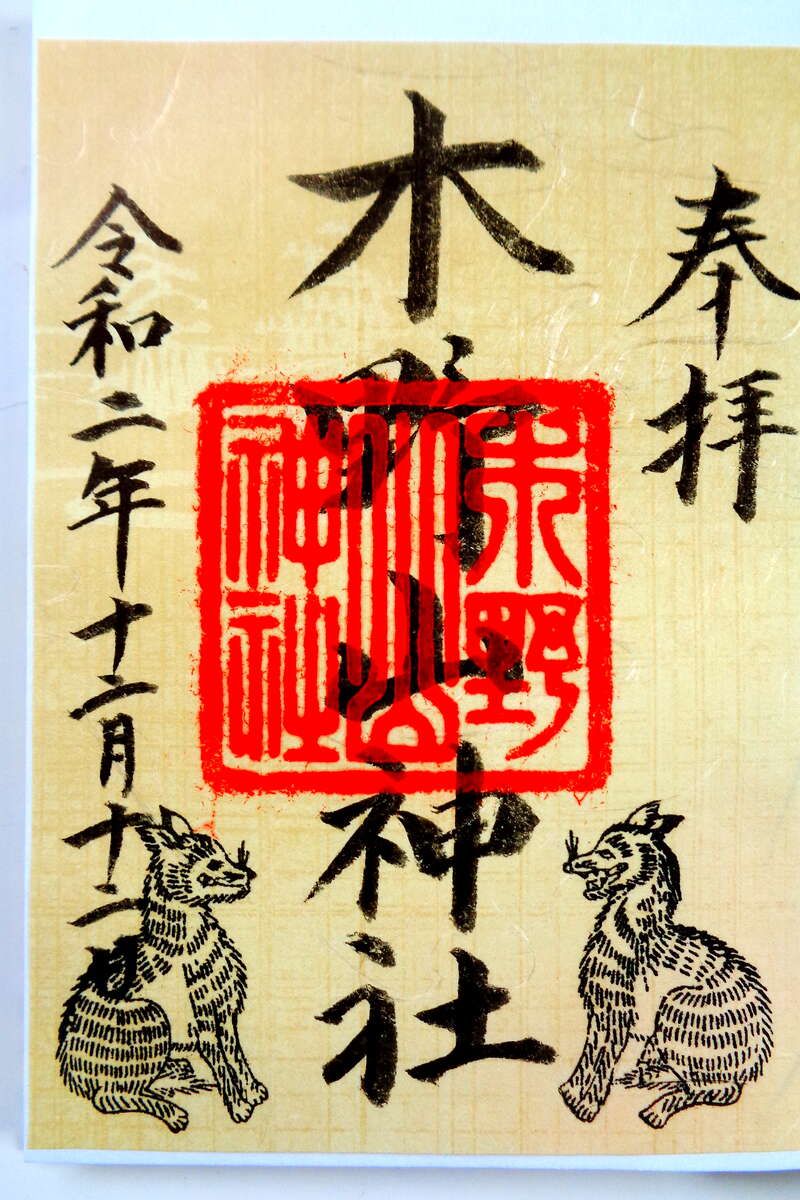 奉拝
木野山神社
木野山神社
令和二年十二月十二日